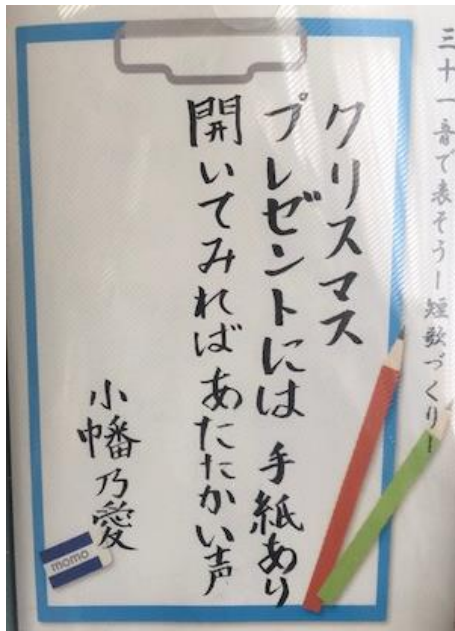 三十一音で表そう―短歌づくり―
クリスマス
プレゼントには 手紙あり
開いてみれば あたたかい声
小幡乃愛
momo